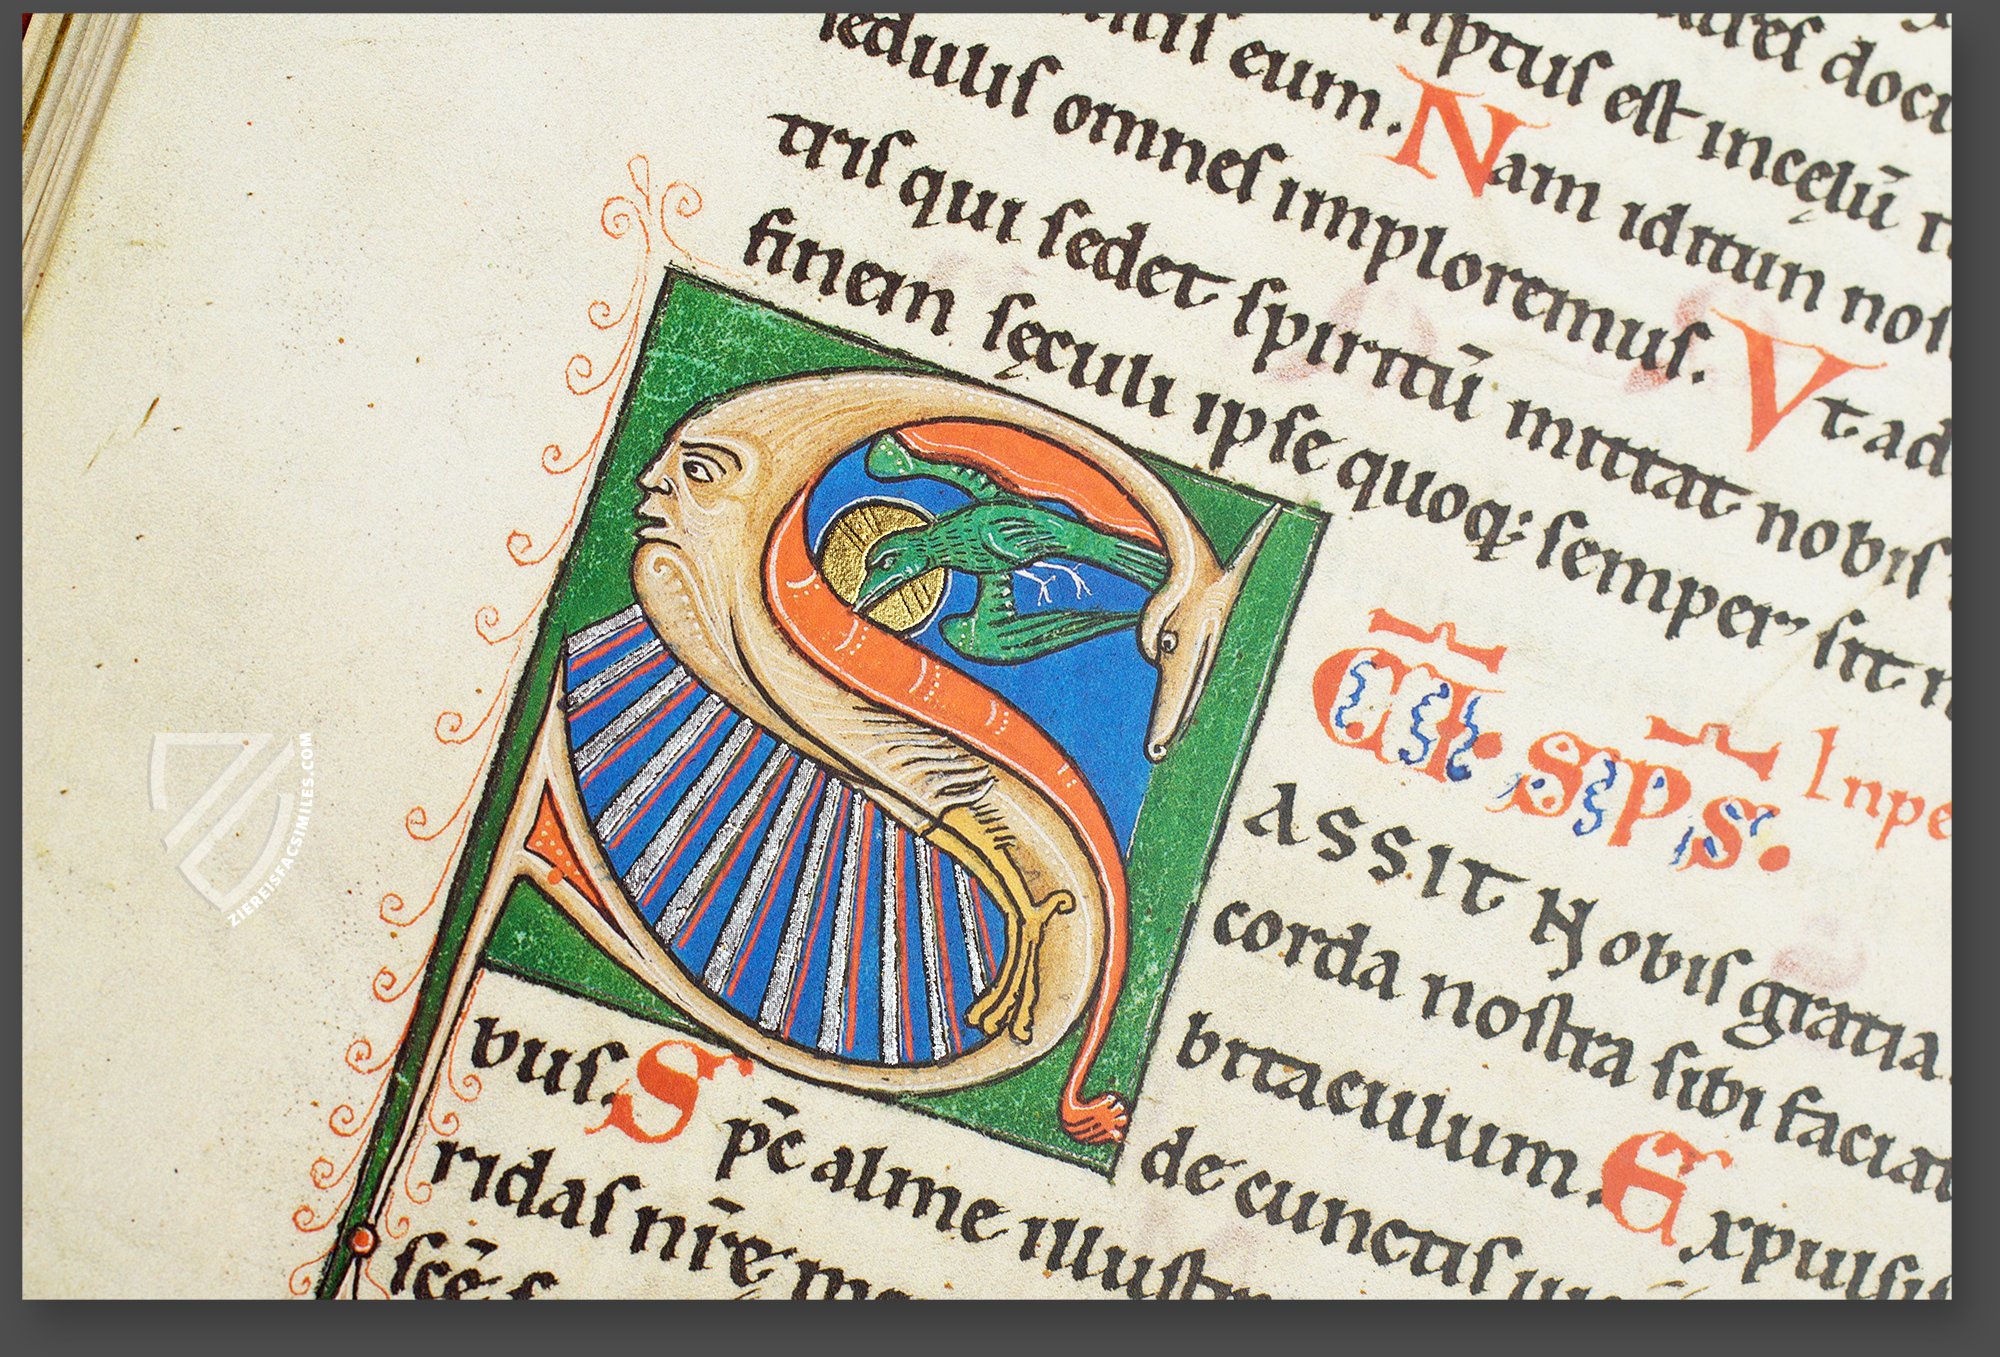 ures doci
iptuſ eſt incęlū r
niſ eum. Nam iditun noſ
ſeduliſ omneſ imploremuſ. Vt ad
triſ qui ſedet ſpiritū mittat nobiſ
finem ſęculi ipſe quoq: ſemper ſit n
SC̄I. SP̄S. Inpe
ASSIT Nobiſ gratia
corda noſtra ſibi faciat
bitaculum. Expulſiſ
de cunctiſ
buſ. Sp̄c alme illuſtr
ridaſ nr̄ę
ſcē ſ
ZIEREISFACSIMILES.COM